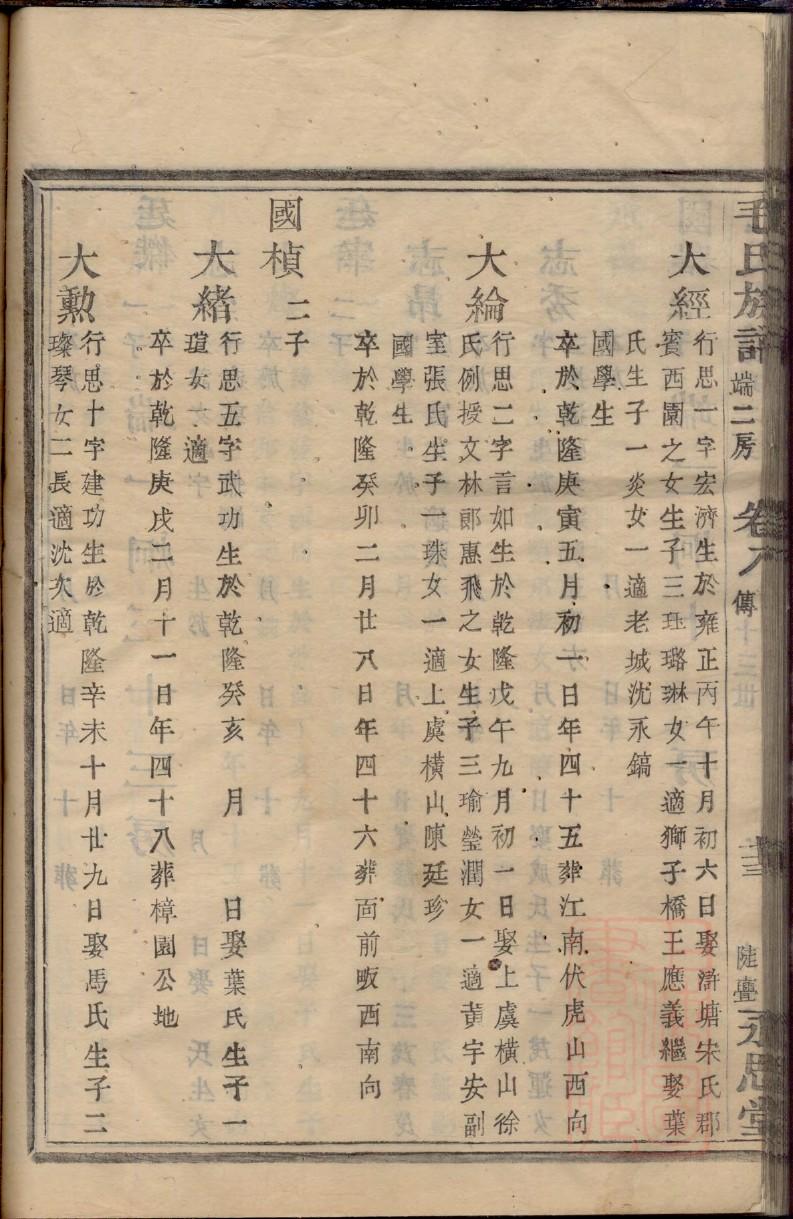 毛氏族譜 端二房 卷八 傳 十三世 十三 陡亹 永思堂
大經 行思一字宏濟生於雍正丙午十月初六日娶滸塘宋氏郡
賓西園之女生子三珏璐琳女一適獅子橋王應義繼娶葉
氏生子一炎女一適老城沈永鎬
國學生
卒於乾隆庚寅五月初一日年四十五葬江南伏虎山西向
大綸 行思二字言如生於乾隆戊午九月初一日娶上虞橫山徐
氏例授文林郎惠飛之女生子三瑜瑩潤女一適黃宇安副
室張氏生子一珠女一適上虞橫山陳廷珍
國學生
卒於乾隆癸卯二月廿八日年四十六葬面前畈西南向
國楨 二子
大緒 行思五字武功生於乾隆癸亥 月 日娶葉氏生子一
瑄女一適
卒於乾隆庚戌二月十一日年四十八葬樟園公地
大勲 行思十字建功生於乾隆辛未十月廿九日娶馬氏生子二
璨琴女二長適沈次適